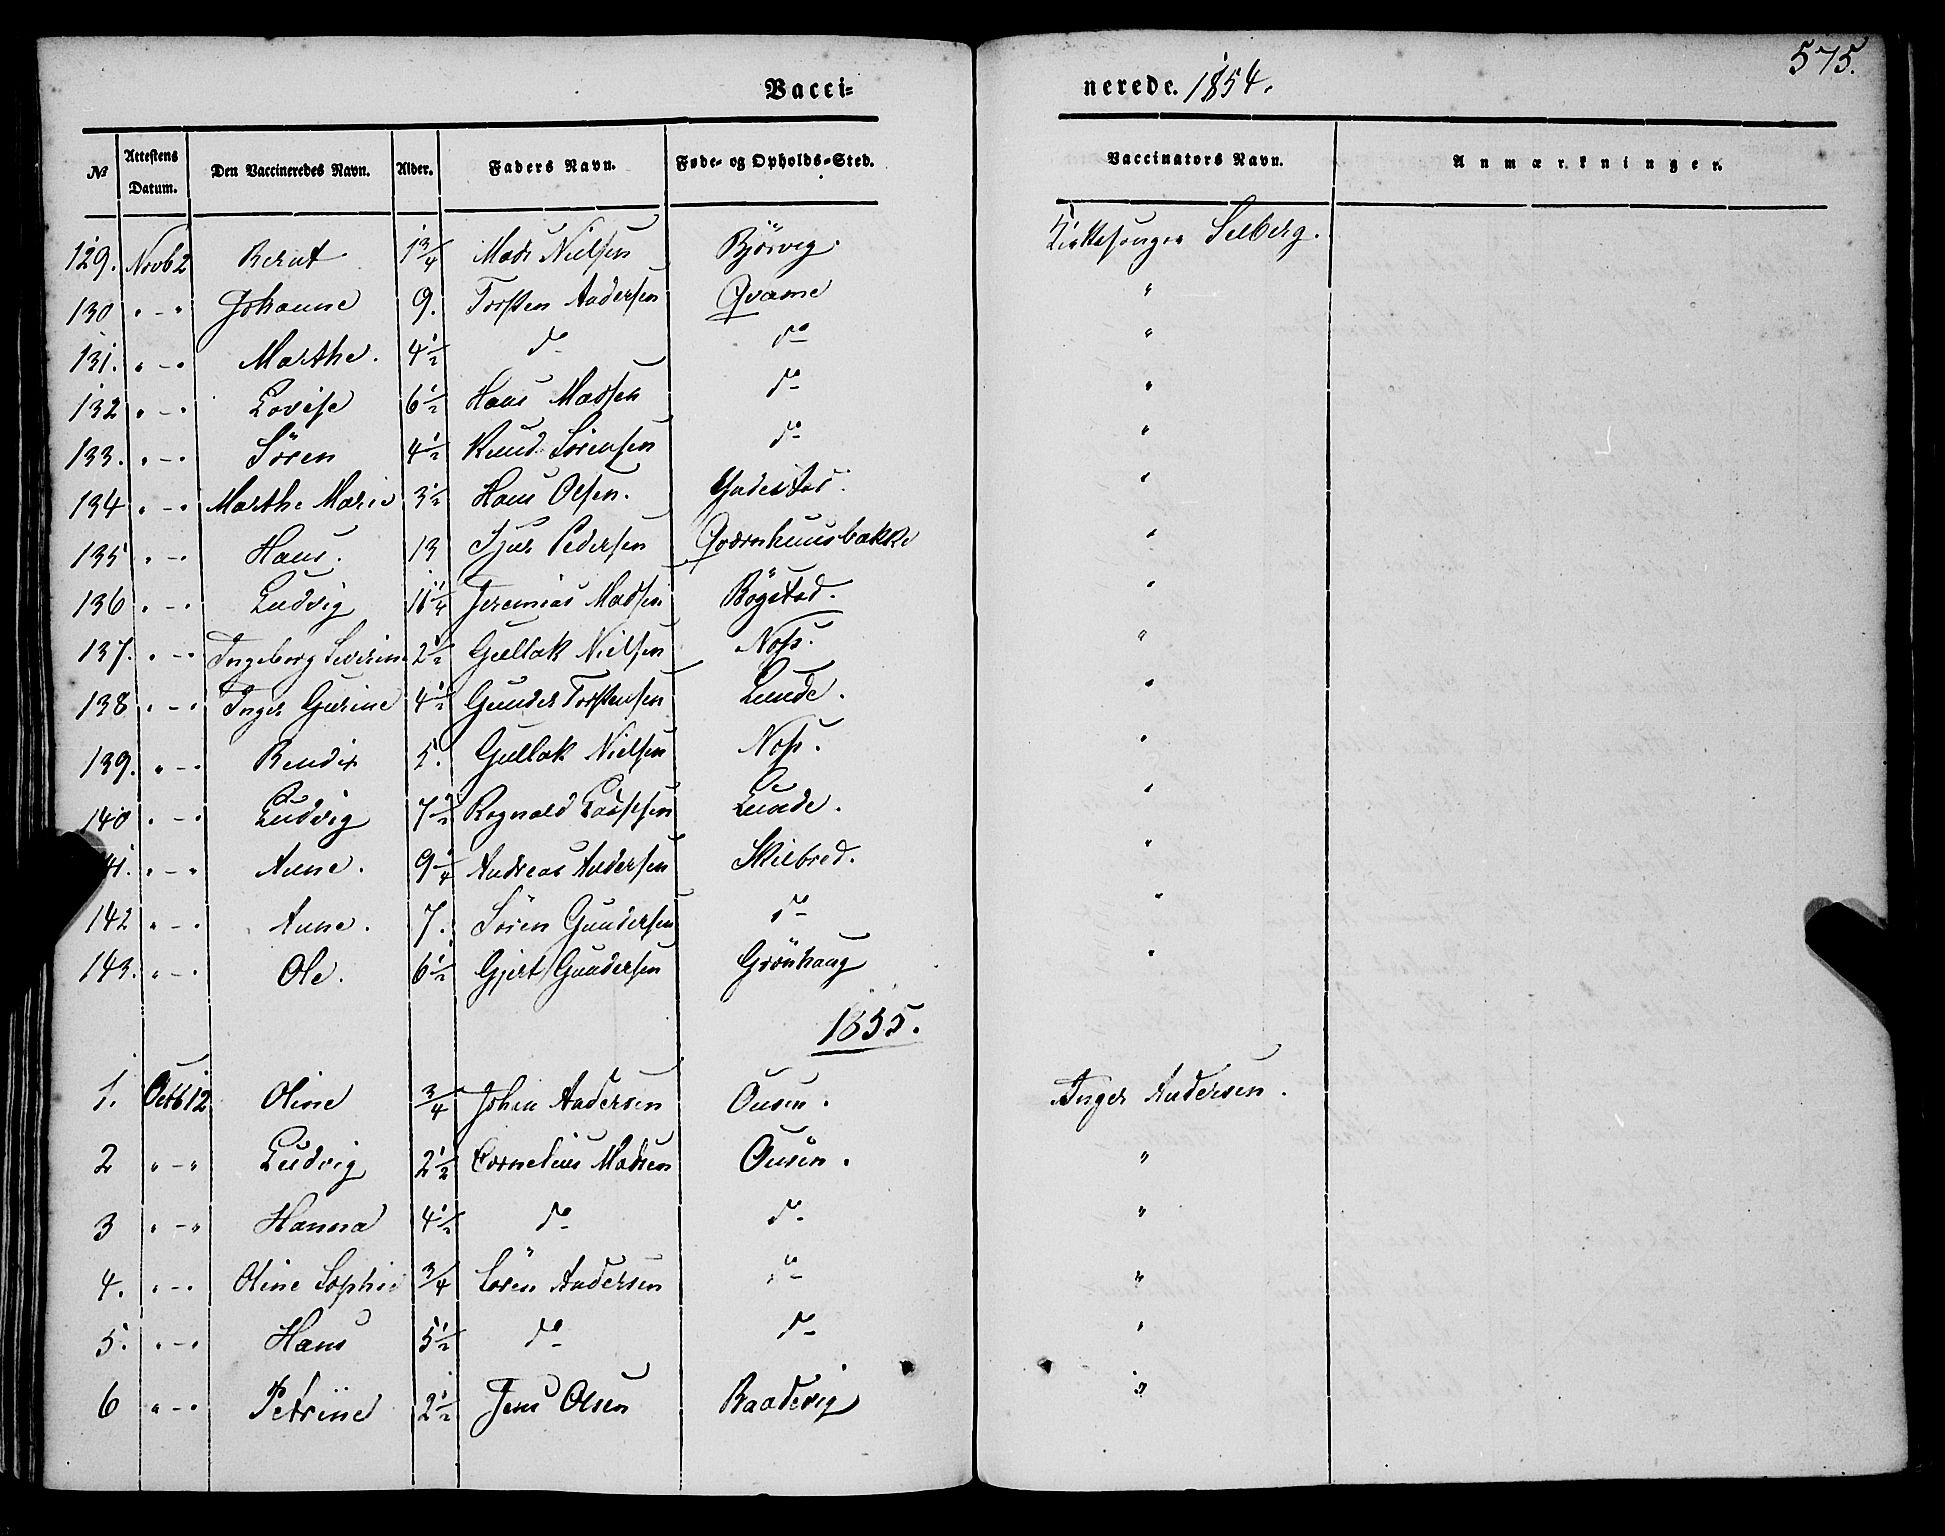 575.
Vacci- nerede. 1854.
No Attestens Datum. Den Vaccineredes Navn. Alder. Faders Navn. Føde- og Opholds-Sted. Vaccinators Navn. Anmærkninger.
129. Novb 2 Bernt 1 3/4 Mads Nielsen Björvig. Kirkesanger Selberg.
130 " - " Johanne 9. Torsten Andersen Qvame "
131. " - " Marthe. 4 1/2 do do "
132 " - " Lovise 6 1/2 Hans Madsen do "
133. " - " Sören 4 1/2 Knud Sörensen do "
134 " - " Marthe Marie 3 1/2 Hans Olsen. "
135 " - " Hans. 13 Sjur Pedersen Qværnhuusbakke "
136 " - " Ludvig 11 1/4 Jeremias Madsen Bögstad. "
137. " - " Ingeborg Severine 2 1/2 Gullak Nielsen Noss. "
138 " - " Inger Gurine 4 1/2 Gunder Torstensen Lunde. "
139. " - " Bendix 5. Gullak Nielsen Noss. "
140 " - " Ludvig 7 1/2 Rognald Lunde. "
141. " - " Anne. 9 1/4 Andreas Andersen Skilbred. "
142 " - " Anne. 7. Sören Gundersen do "
143. " - " Ole. 6 1/2 Gjert Gundersen Grönhaug "
1855.
1. Octb 12 Oline 3/4 Johan Andersen Ousen. Inger Andersen.
2 " - " Ludvig 2 1/2 Cornelius Madsen Ousen. "
3 " - " Hanna 4 1/2 do do "
4. " - " Oline Sophie 3/4 Sören Andersen do "
5. " - " Hans 5 1/2 do do "
6 " - " Petrine 2 1/2 Jens Olsen Raadevig "